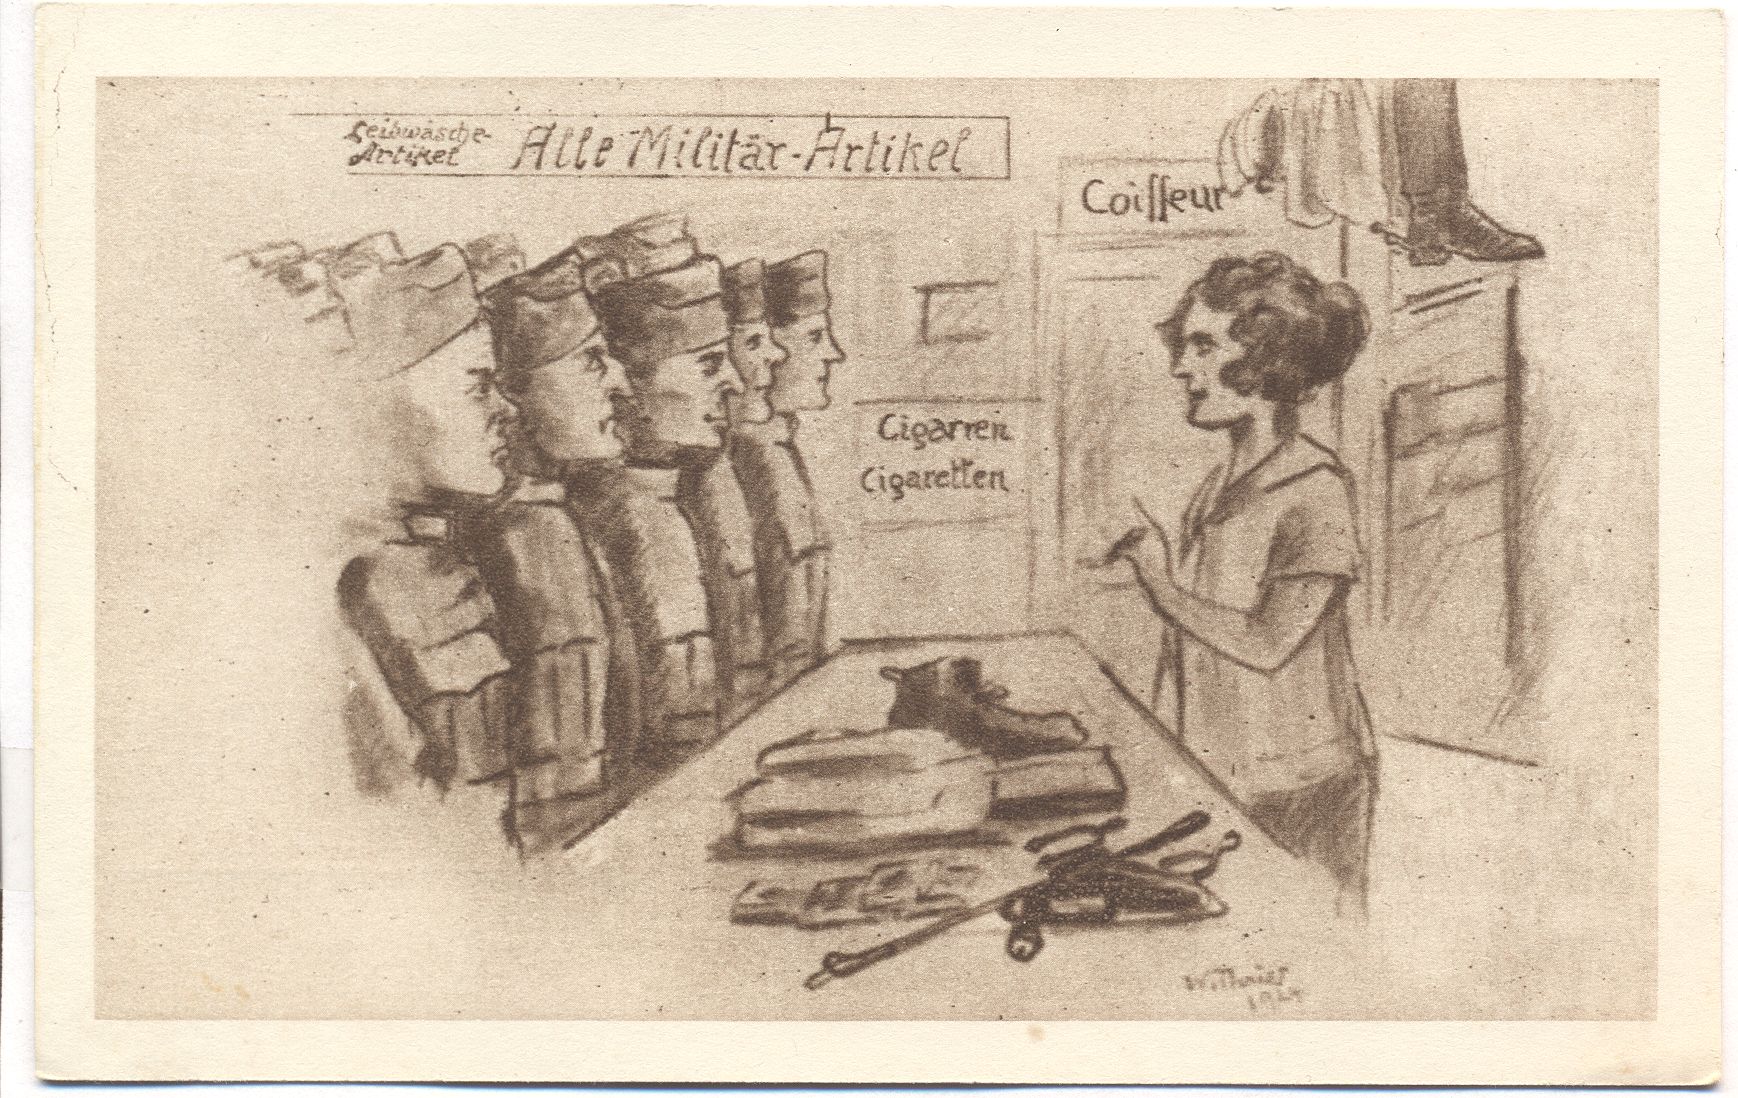 Leibwäsche-
Artikel
Alle Militär-Artikel
Coiffeur
Cigarren
Cigaretten
1924